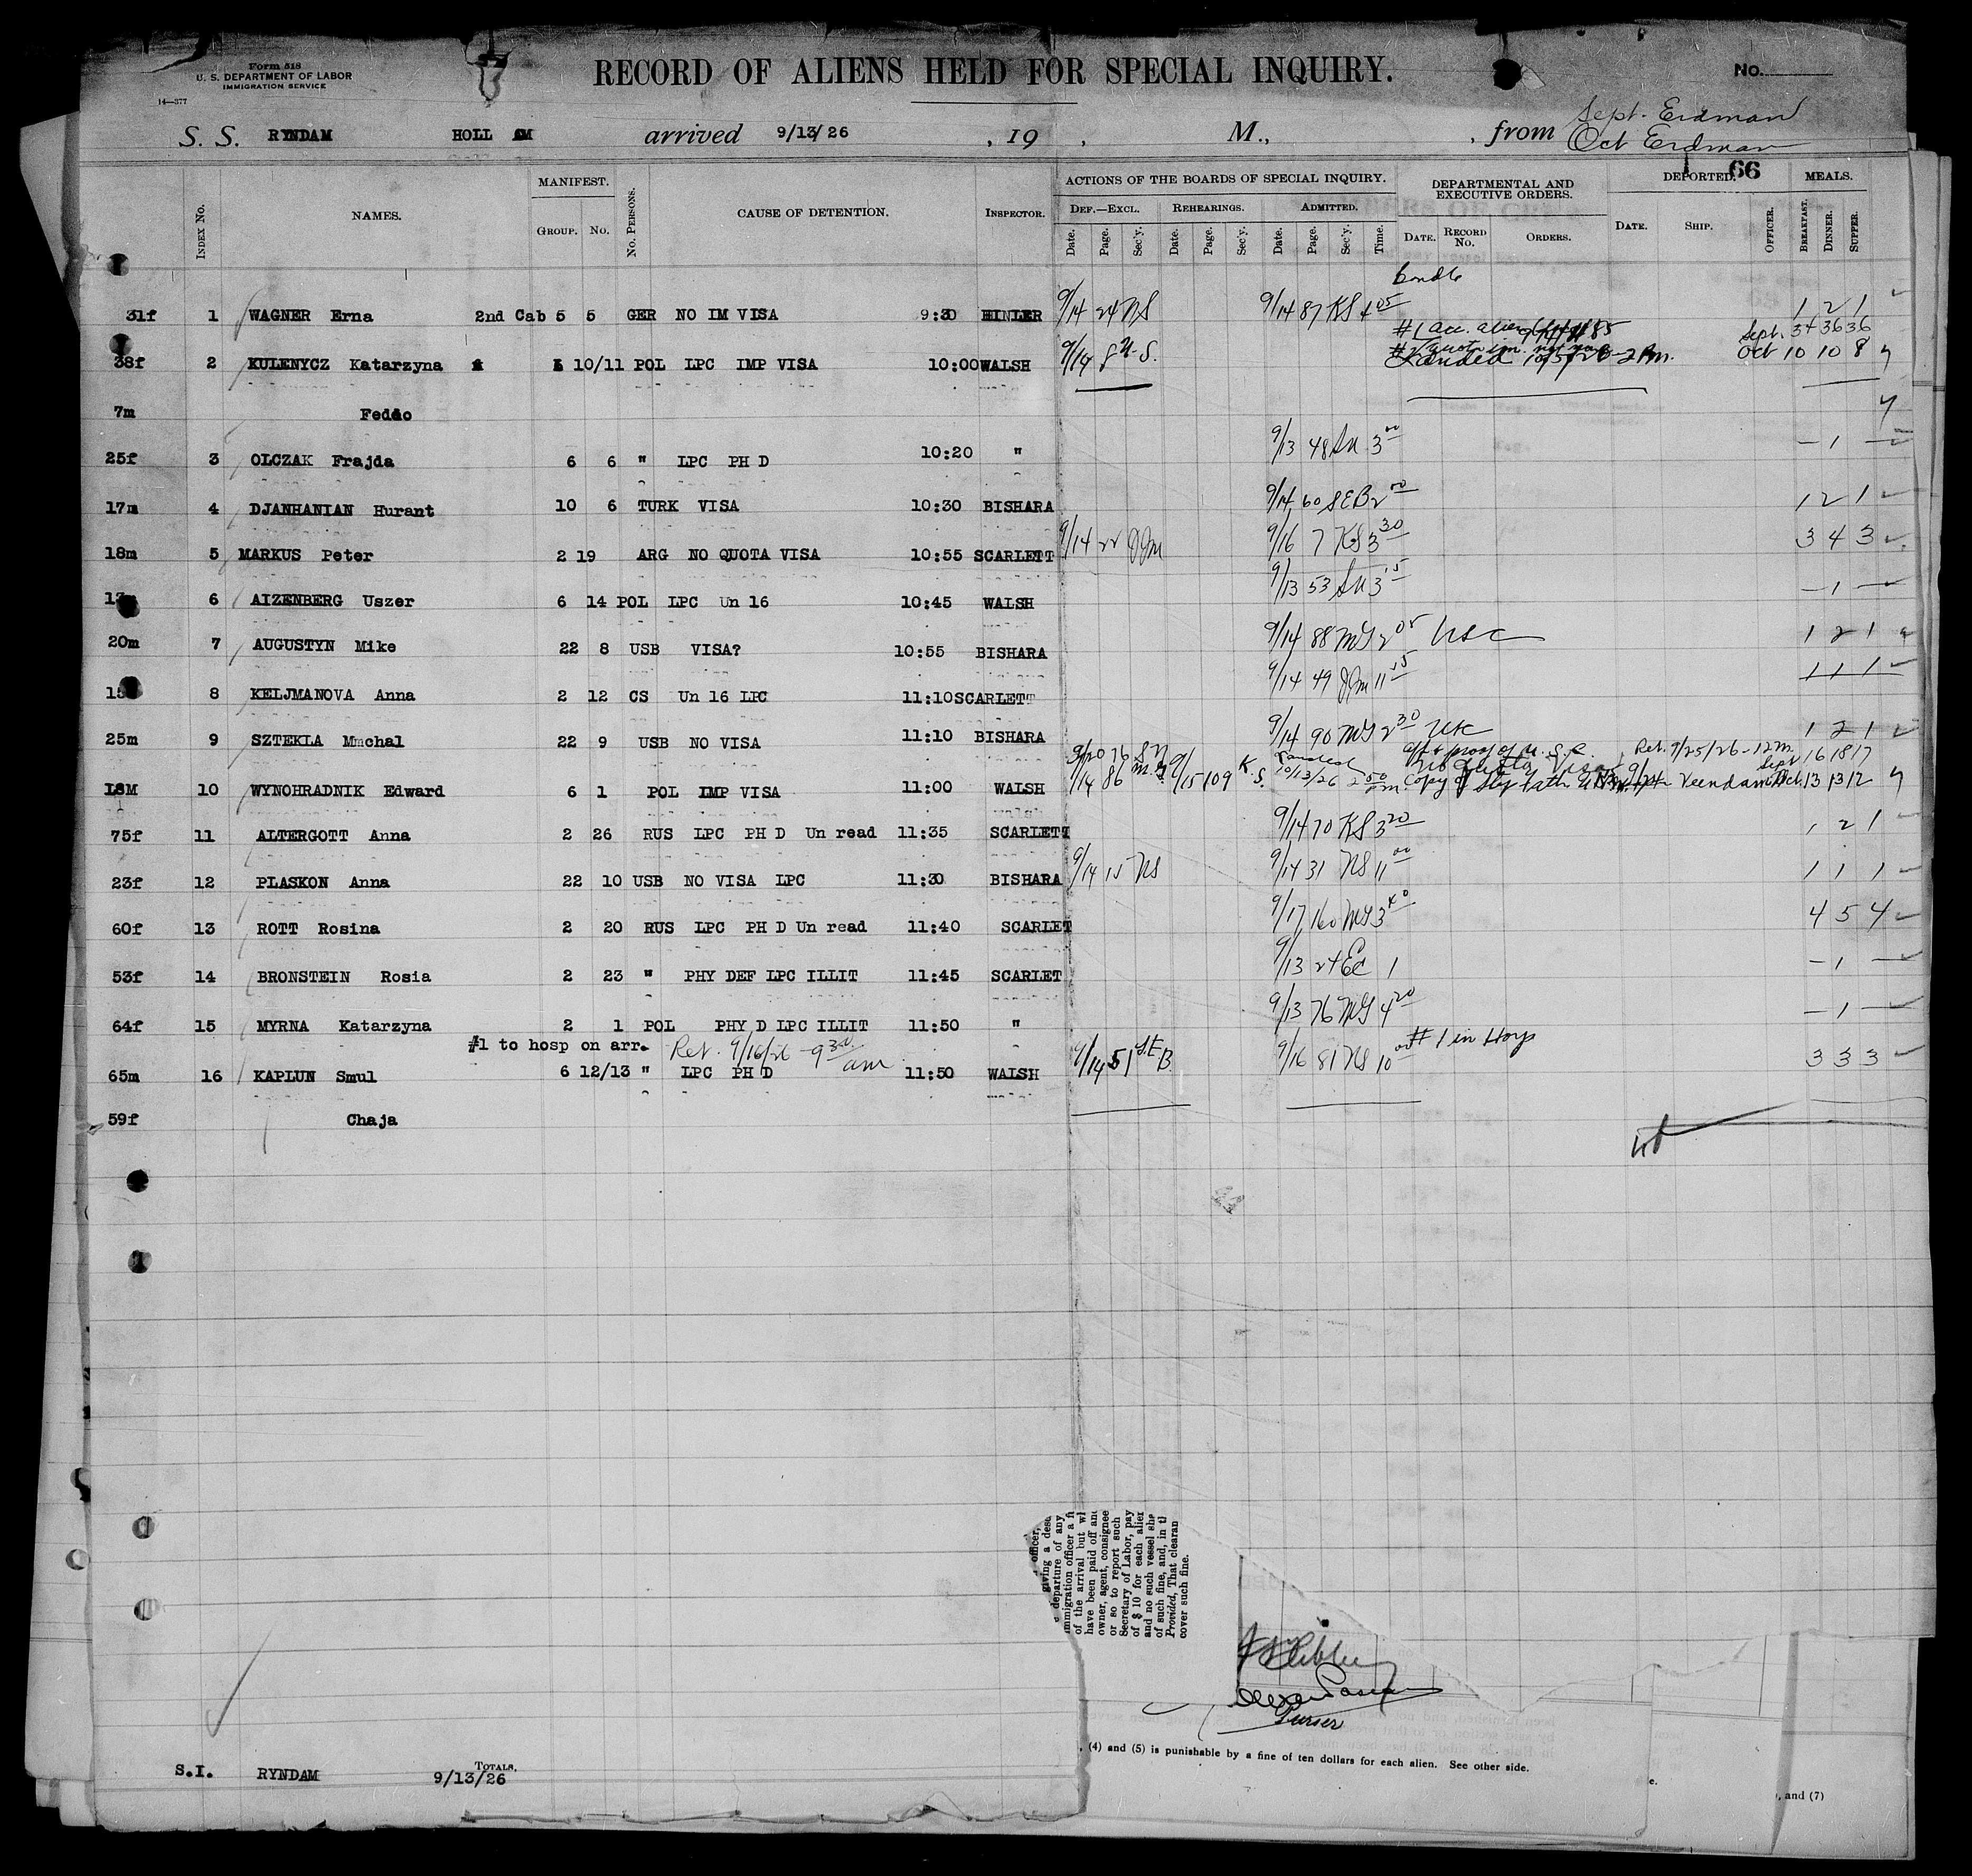 Form 518
U. S. DEPARTMENT OF LABOR
IMMIGRATION SERVICE
14—377
RECORD OF ALIENS HELD FOR SPECIAL INQUIRY.
No.
S. S. RYNDAM HOLL AM arrived 9/13/26 , 19 , M., , from Sept. Erdman
Oct Erdman
66
INDEX No. NAMES. MANIFEST. GROUP. No. No. PERSONS. CAUSE OF DETENTION. INSPECTOR. ACTIONS OF THE BOARDS OF SPECIAL INQUIRY. DEPARTMENTAL AND EXECUTIVE ORDERS. DEPORTED. MEALS.
DEF.—EXCL. REHEARINGS. ADMITTED.
Date. Page. Sec'y. Date. Page. Sec'y. Date. Page. Sec'y. Time. DATE. RECORD No. ORDERS. DATE. SHIP. OFFICER. BREAKFAST. DINNER. SUPPER.
31f 1 WAGNER Erna 2nd Cab 5 5 GER NO IM VISA 9:30 9/14 24 NS 9/14 87 KS 4 05 1 2 1
Sept. 34 36 36
38f 2 KULENYCZ Katarzyna 10/11 POL LPC IMP VISA 10:00 WALSH 9/14 Landed 2 Pm. Oct 10 10 8
7m Fedko
25f 3 OLCZAK Frajda 6 6 " LPC PH D 10:20 " 9/13 48 SN 3 00 — 1 —
17m 4 DJANHANIAN Hurant 10 6 TURK VISA 10:30 BISHARA 9/14 60 SEB 2 00 1 2 1
18m 5 MARKUS Peter 2 19 ARG NO QUOTA VISA 10:55 SCARLETT 9/14 22 JJm 9/16 7 KS 3 30 3 4 3
6 AIZENBERG Uszer 6 14 POL LPC Un 16 10:45 WALSH 9/13 53 SN 3 15 — 1 —
20m 7 AUGUSTYN Mike 22 8 USB VISA? 10:55 BISHARA 9/14 88 MG 2 05 USC 1 2 1
8 KELJMANOVA Anna 2 12 CS Un 16 LPC 11:10 SCARLETT 9/14 49 JJm 11 15 1 1 1
25m 9 SZTEKLA Mmchal 22 9 USB NO VISA 11:10 BISHARA 9/14 90 MG 2 30 USC 1 2 1
9/20 76 Landed Ret. 9/25/26 - 12 m. Sept 16 18 17
18M 10 WYNOHRADNIK Edward 6 1 POL IMP VISA 11:00 WALSH 9/14 86 M.G 9/15 109 K.S. 10/13/26 2 50 Pm. Copy Veendam Oct. 13 13 12
75f 11 ALTERGOTT Anna 2 26 RUS LPC PH D Un read 11:35 SCARLETT 9/14 70 KS 3 20 1 2 1
23f 12 PLASKON Anna 22 10 USB NO VISA LPC 11:30 BISHARA 9/14 15 NS 9/14 31 NS 11 00 1 1 1
60f 13 ROTT Rosina 2 20 RUS LPC PH D Un read 11:40 SCARLET 9/17 160 MG 3 40 4 5 4
53f 14 BRONSTEIN Rosia 2 23 " PHY DEF LPC ILLIT 11:45 SCARLET 9/13 24 EC 1 — 1 —
64f 15 MYRNA Katarzyna 2 1 POL PHY D LPC ILLIT 11:50 " 9/13 76 MG 4 20 — 1 —
#1 to hosp on arr. Ret. 9/16/26 - 9 30 am
65m 16 KAPLUN Smul 6 12/13 " LPC PH D 11:50 WALSH 9/14 51 S.E.B. 9/16 81 NS 10 00 #1 in Hosp 3 3 3
59f Chaja
officer,
giving a dese
departure of any
immigration officer a fu
of the arrival but wh
have been paid off and
owner, agent, consignee
or so to report such
Secretary of Labor, pay
of $ 10 for each alien
and no such vessel sha
of such fine, and, in th
Provided, That clearan
cover such fine.
Purser
, (4) and (5) is punishable by a fine of ten dollars for each alien. See other side.
e.
, and (7)
TOTALS.
S.I. RYNDAM 9/13/26